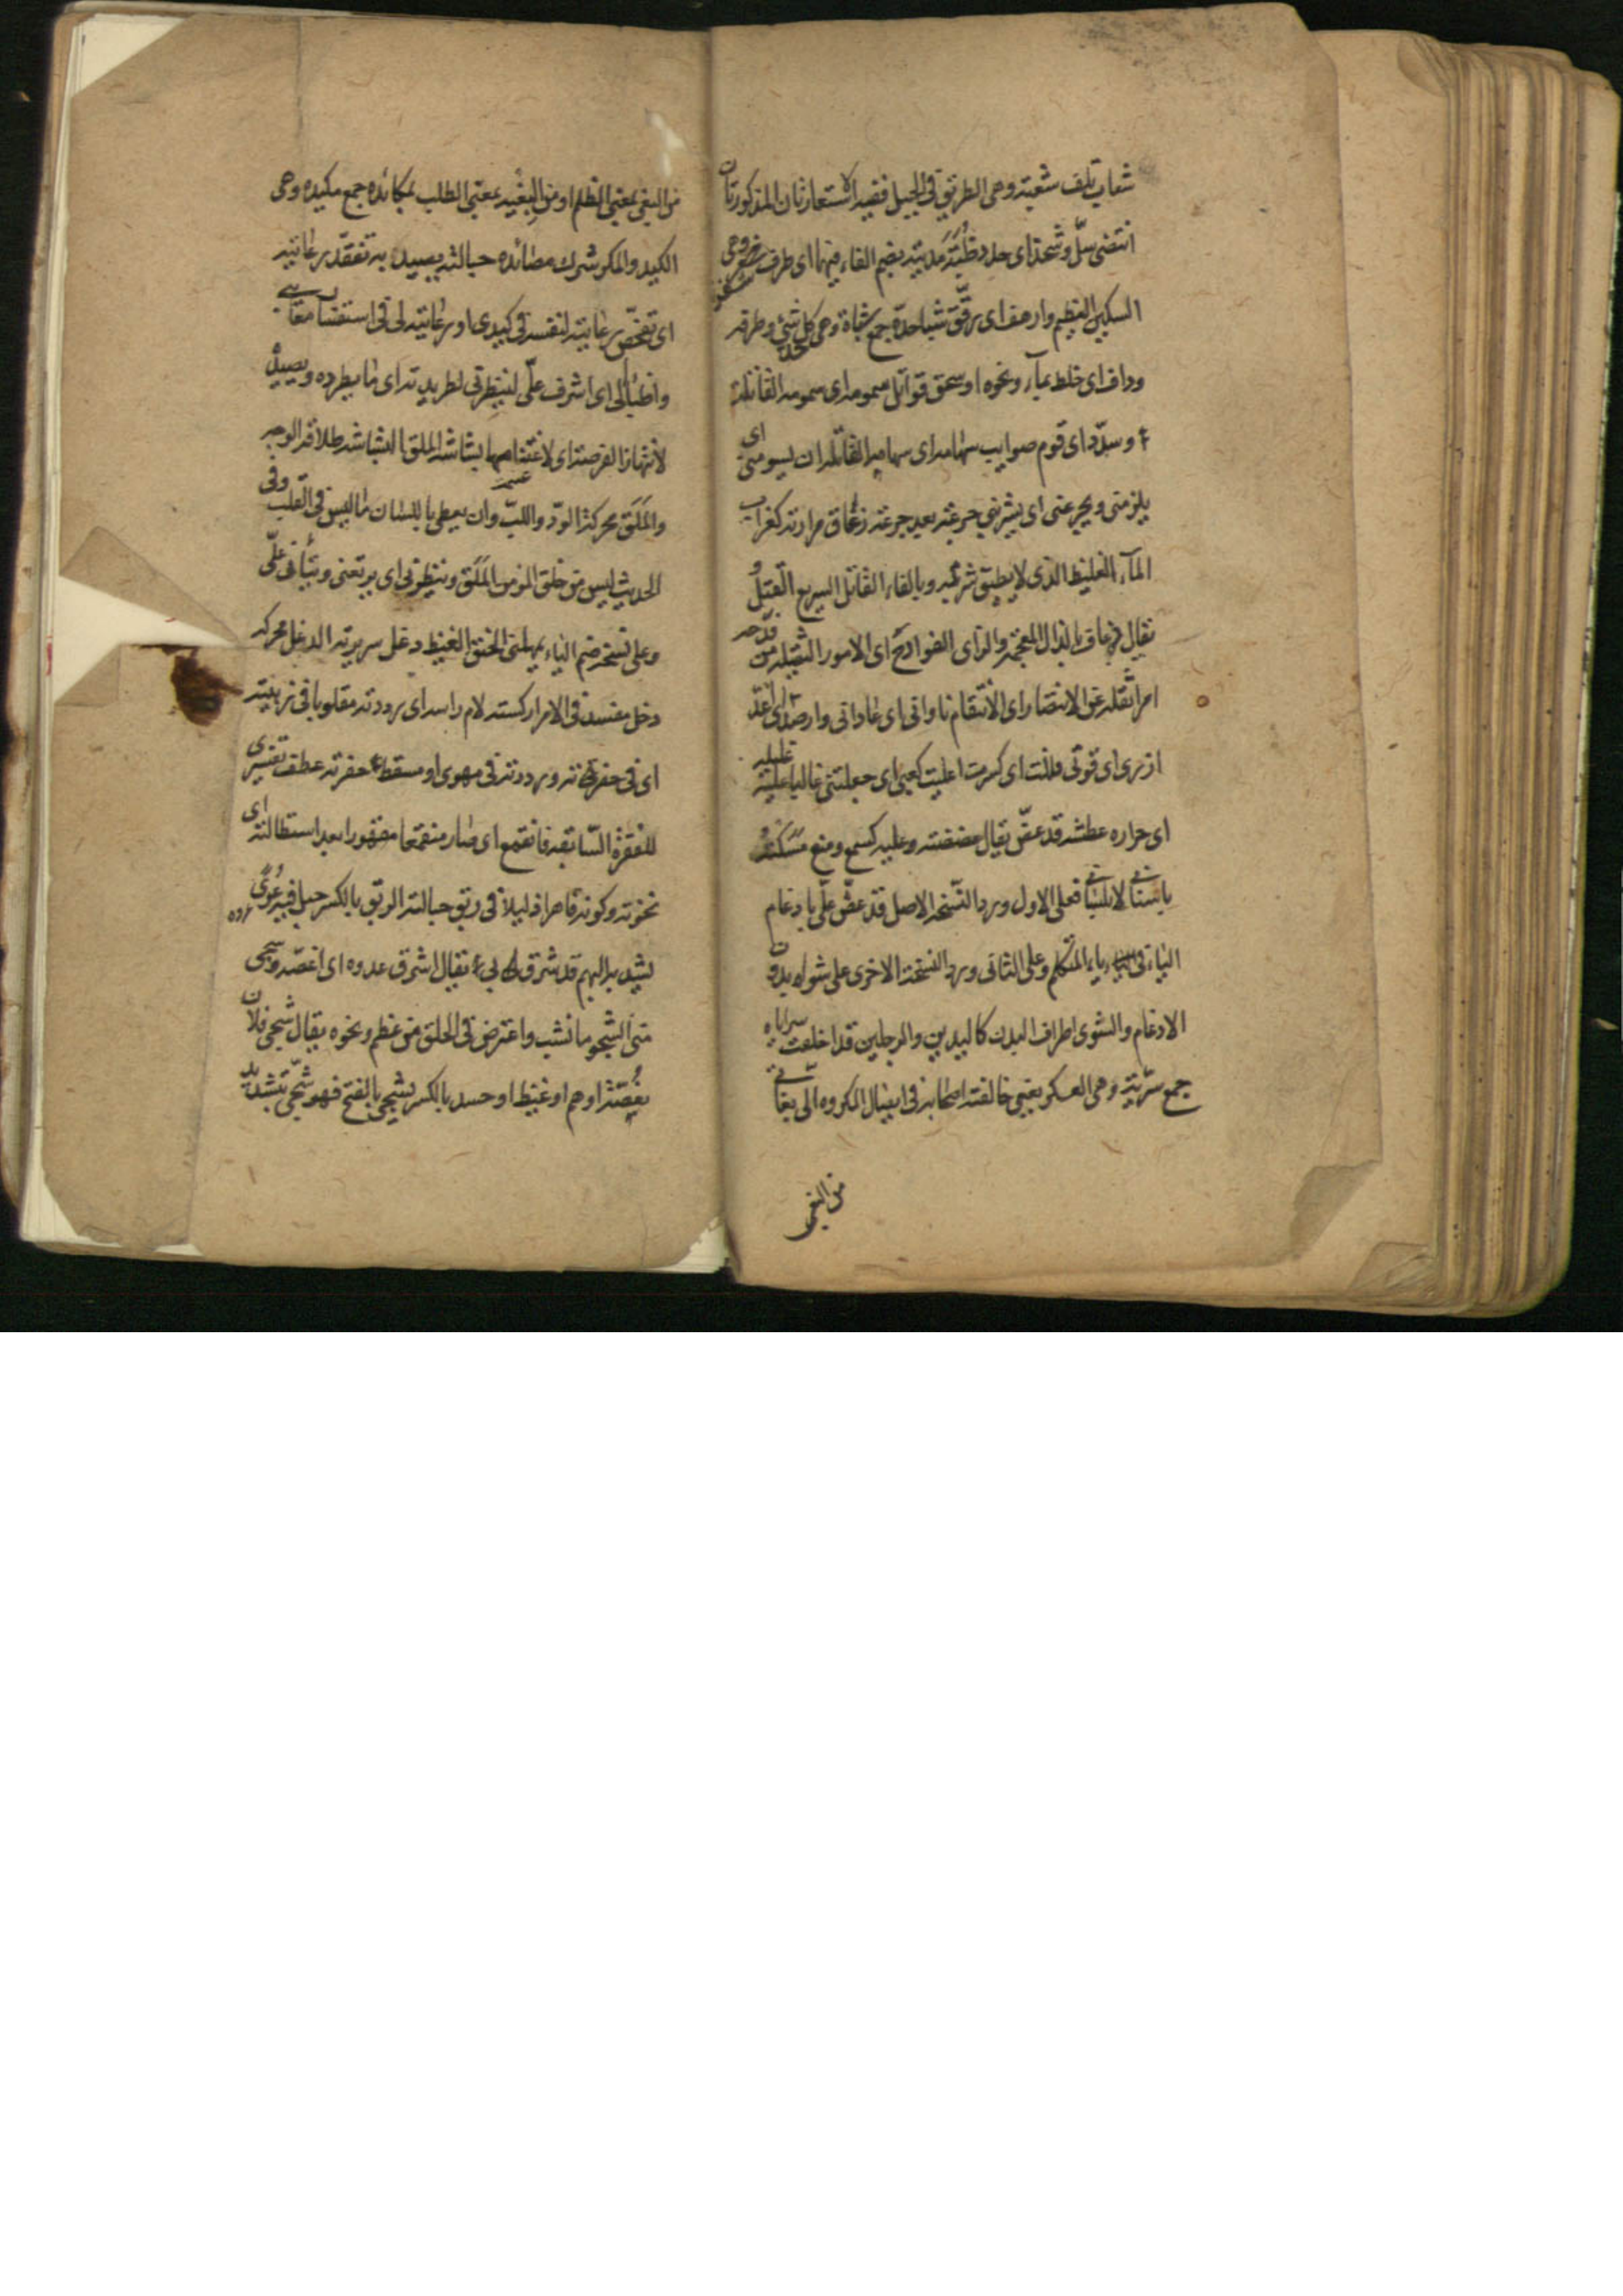 شعاب تلف شعبته وهى الطريق فى الجبل ففيه الاستعارتان المذكورتان
انتضى سلّ وشحذ اى حدد ظُبَةَ مُديته بضم الفاء فيهما اى طرف وهى
السكين العظيم وارهف اى رقّق شبا حدّه جمع شباة وهى كل شئ وطرفه
وداف اى خلط بماء ونحوه او سحق قواتل سمومه اى سمومه القاتلة
وسدّد اى قوم صوايب سهامه اى سهامه القاتله ان يسومنى اى
يلزمنى ويجرعنى اى يشربنى جرعة بعد جرعة زعاق مرارته كغراب
المآء الغليظ الذى لا يطيق شربه وبالفاء القاتل السريع القتل و
يقال ذعاف بالذال المعجمه والزاى الفوادح اى الامور الثقيله من فدحه
امر اثقله عن الانتصار اى الانتقام ناوانى اى عادانى وارصد اى اعدّ
ازرى اى قوتى فللت اى كسرت اعليت كعبى اى جعلتنى غالبا عليه غليله
اى حراره عطشه قد عضّ يقال عضضته وعليه كسمع ومنع مسكته
باسنانى لا بلسانى فعلى الاول ورد النسخه الاصل قد عضّ علىّ بادغام
الياء فى ياء المتكلم وعلى الثانى ورد النسخة الاخرى على شواه بدون
الادغام والشوى اطراف البدن كاليدين والرجلين قد اخلفت سراياه
جمع سريّة وهى العسكر يعنى خالفته اصحابه فى ايصال المكروه الىّ بغانى
من البغى
من البغى بمعنى الظلم او من البغيه بمعنى الطلب بمكائده جمع مكيده وهى
الكيد والمكر شرك مصائده حبالته يصيد به تفقّد رعايته
اى تفحّص رعايته لنفسه فى كيدى او رعايته لى فى استقصاء معايبى
واضبأ الىّ اى اشرف علىّ لينظرنى لطريدته اى ما يطرده ويصيده
لانتهاز الفرصة اى لاغتنامها بشاشة الملق البشاشه طلاقه الوجه
والملَق محركة الودّ واللّب وان يعطى باللسان ما ليس فى القلب وفى
الحديث ليس من خلق المؤمن الملَق وينظرنى اى يرتقبنى ويتأنى علىّ
وعلى نسخه ضم الياء يمهلنى الحنق الغيظ دغل سريرته الدغل محركه
دخل مفسد فى الامر اركسته لام راسه اى رددته مقلوبا فى زبيته
اى فى حفرته ورددته فى مهوى او مسقط حفرته عطف تفسيرى
للفقرة السابقه فانقمع اى صار منقمعا مقهورا بعد استطالته اى
نخوته وكونه قاهرا ذليلا فى ربق حبالته الربق بالكسر حبل فيه عُرىً
يشد به البهم قد شرق بى يقال اشرق عدوه اى اغصّه وشجى
منى الشجو ما نشب واعترض فى الحلق من عظم ونحوه يقال شجى فلان
بغصّته او هم او غيظ او حسد بالكسر يشجى بالفتح فهو شجىّ بتشديد